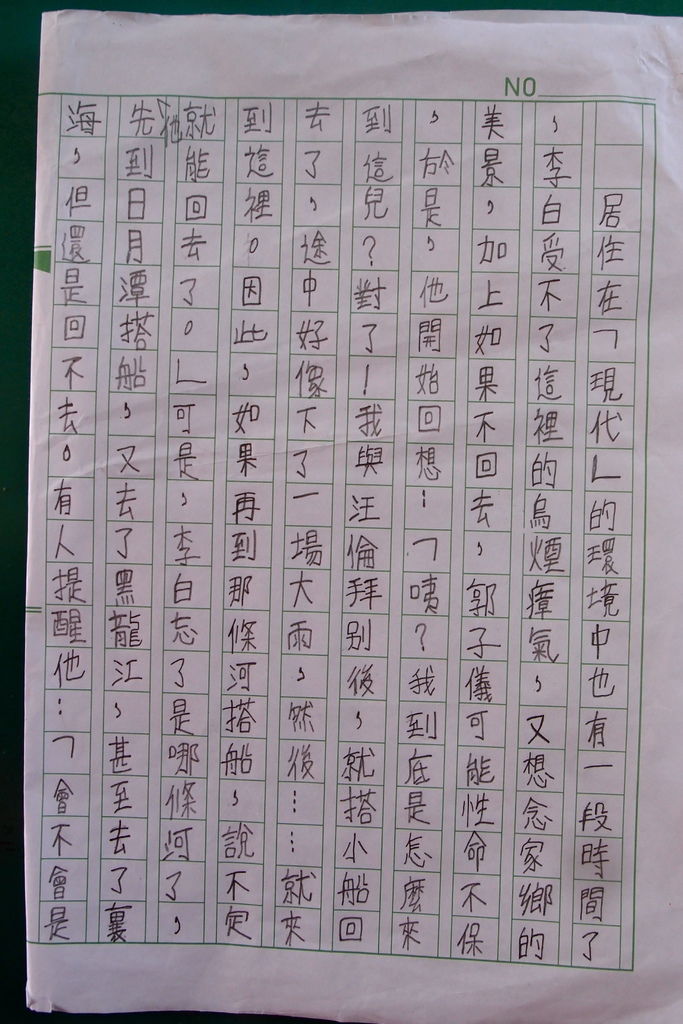 NO
居住在「現代」的環境中也有一段時間了
，李白受不了這裡的烏煙瘴氣，又想念家鄉的
美景，加上如果不回去，郭子儀可能性命不保
，於是，他開始回想：「咦？我到底是怎麼來
到這兒？對了！我與汪倫拜別後，就搭小船回
去了，途中好像下了一場大雨，然後……就來
到這裡。因此，如果再到那條河搭船，說不定
他就能回去了。」可是，李白忘了是哪條河了，
先到日月潭搭船，又去了黑龍江，甚至去了裏
海，但還是回不去。有人提醒他：「會不會是